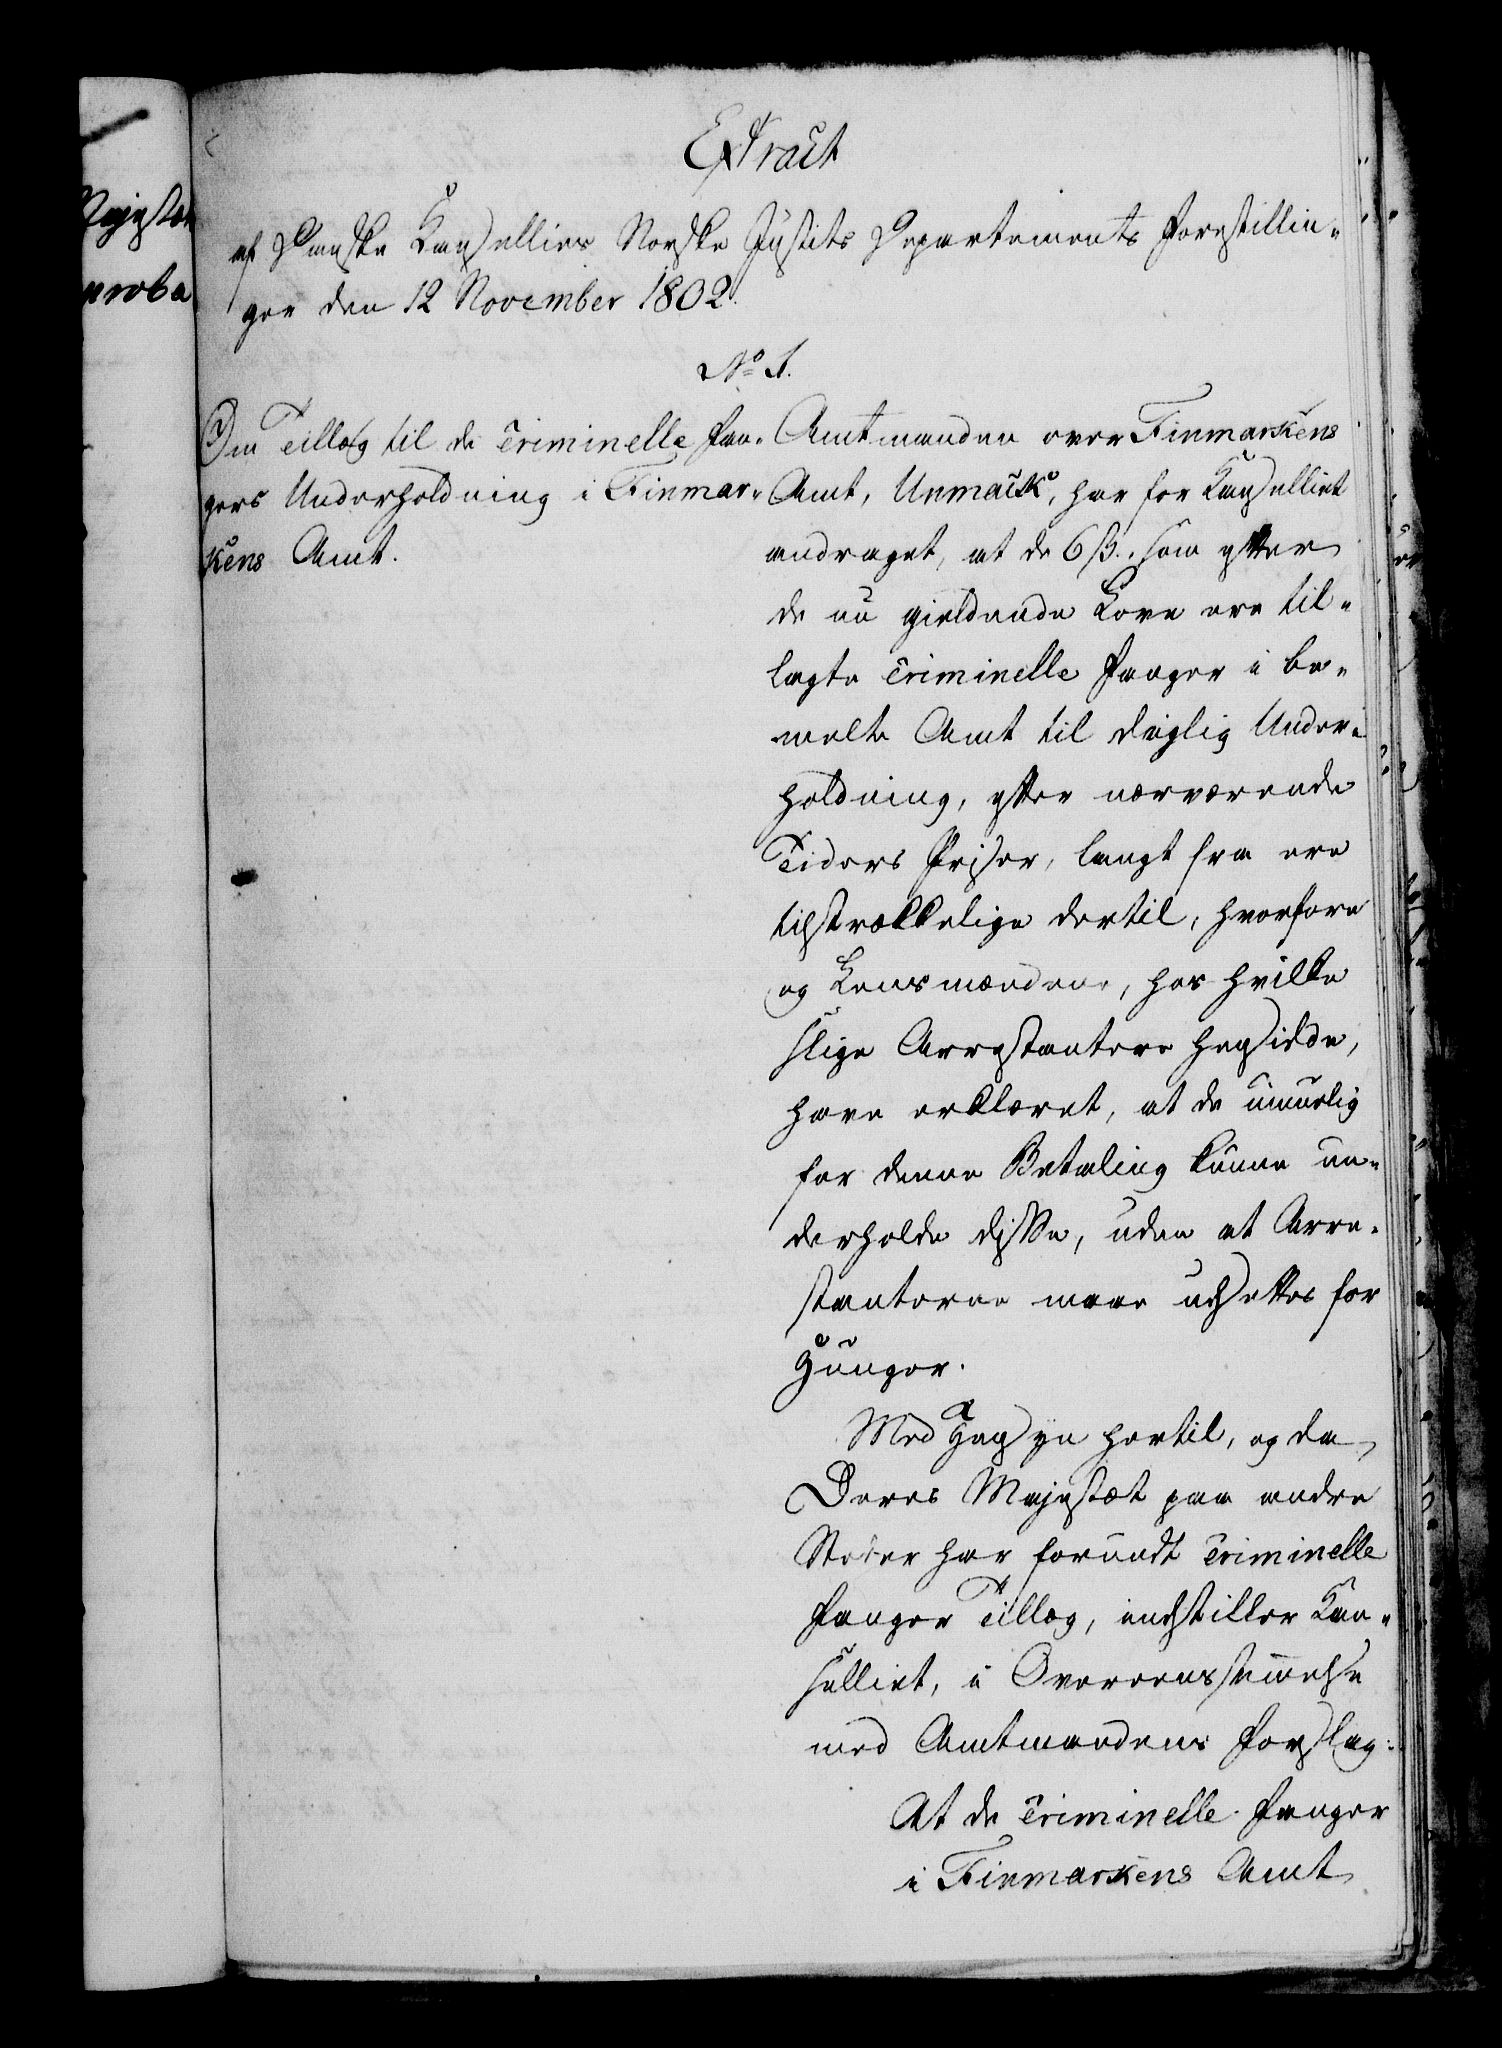 Extract
af Danske Kancelliets Norske Justits Departements Forestillin-
ger den 12 November 1802.
No 1.
Om Tillæg til de Criminelle Fan-
gers Underholdning i Finmar-
kens Amt.
Amtmanden over Finmarkens
Amt, Unmack, har for Kancelliet
andraget, at de 6 ß. som efter
de nu gieldende Love ere til-
lagte Criminelle Fanger i be-
melte Amt til daglig Under-
holdning, efter nærværende
Tiders Priser, langt fra ere
tilstrækkelige dertil, hvorfore
og Lensmændene, hos hvilke
slige Arrestantere hensidde,
have erklæret, at de umuelig
for denne Betaling kunne un-
derholde disse, uden at Arre-
stanterne maae udsettes for
Hunger.
Med Hensyn hertil, og da
Deres Majestæt paa andre
Steder har forundt Criminelle
Fanger Tillæg, indstiller Kan-
celliet, i Overeensstemmelse
med Amtmandens Forslag:
At de Criminelle Fanger
i Finmarkens Amt
Majestæt
proba